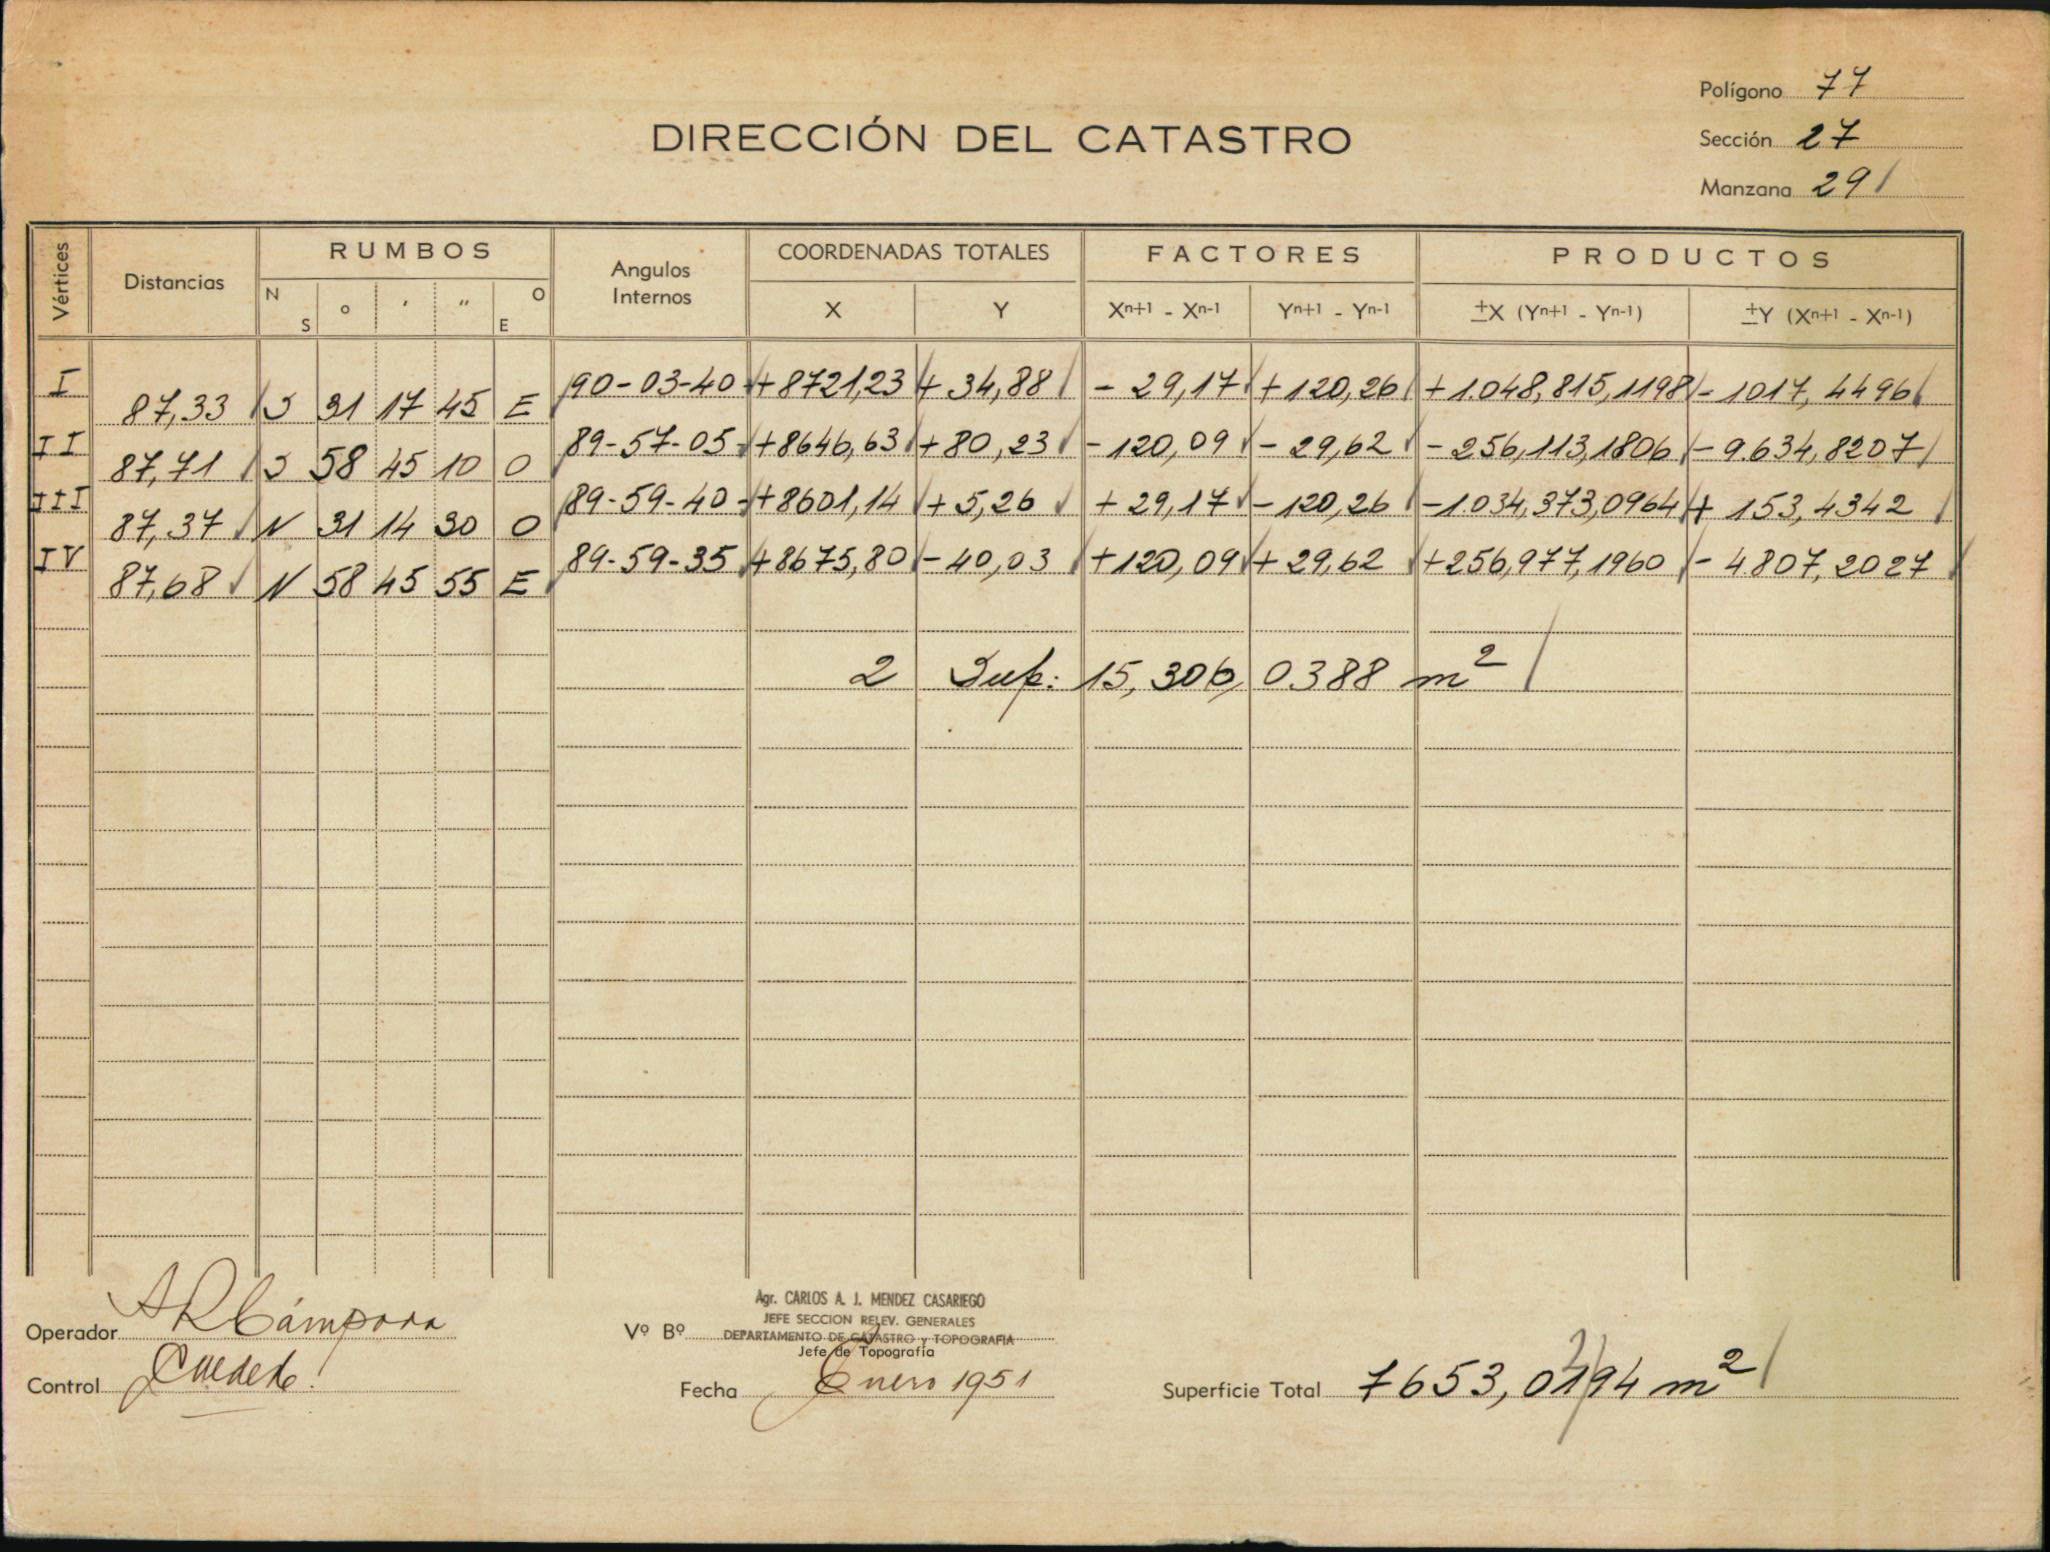 Polígono 77
DIRECCIÓN DEL CATASTRO
Sección 27
Manzana 29
Vértices Distancias RUMBOS Angulos Internos COORDENADAS TOTALES FACTORES PRODUCTOS
N S o ' " O E X Y Xn+1 - Xn-1 Yn+1 - Yn-1 ±X (Yn+1 - Yn-1) ±Y (Xn+1 - Xn-1)
I 90-03-40 +8721,23 + 34,88 - 29,17 +120,26 +1.048,815,1198 - 1017,4496
87,33 S 31 17 45 E
II 89-57-05 +8646,63 +80,23 -120,09 - 29,62 -256,113,1806 -9.634,8207
87,71 S 58 45 10 O
III 89-59-40 +8601,14 +5,26 +29,17 -120,26 -1.034,373,0964 + 153,4342
87,37 N 31 14 30 O
IV 89-59-35 +8675,80 -40,03 +120,09 +29,62 +256,977,1960 - 4807,2027
87,68 N 58 45 55 E
2 Sup: 15,306,0388 m²
Agr. CARLOS A. J. MENDEZ CASARIEGO
JEFE SECCION RELEV. GENERALES
DEPARTAMENTO DE CATASTRO y TOPOGRAFIA
Operador ARCámpora Vº Bº
Jefe de Topografía
Control Fecha Enero 1951 Superficie Total 7653,0194 m²